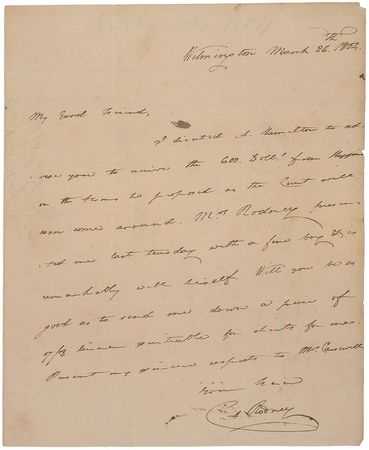 Wilmington March 26th. 1804.
My Good Friend,
I directed A. Hamilton to ad-
vise you to receive the 600 Dolls. from
on the terms he proposed as the Court will
soon come around. Mrs Rodney presen-
ted me last tuesday with a fine boy & is
remarkably well herself. Will you be as
good as to send me down a piece of
7/8 linnen suitable for shirts for me.
Present my sincere respects to Mr. Caswell
Your friend
C. A. Rodney